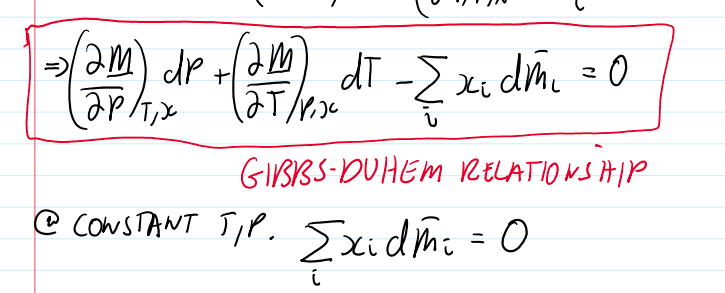 ⇒(∂M/∂P)_{T,x} dP + (∂M/∂T)_{P,x} dT - ∑_i x_i dm̄_i = 0
GIBBS-DUHEM RELATIONSHIP
@ CONSTANT T,P. ∑_i x_i dm̄_i = 0